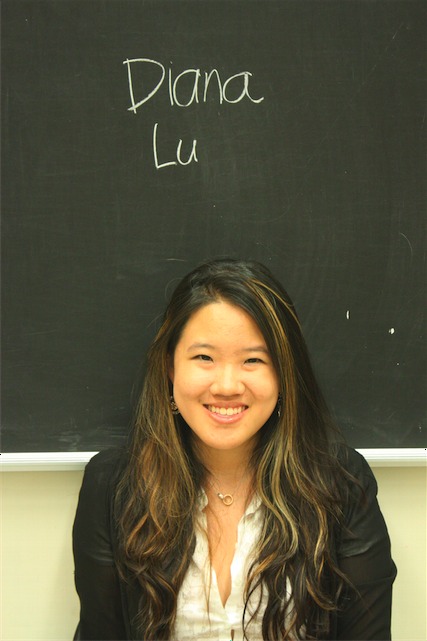 Diana
Lu